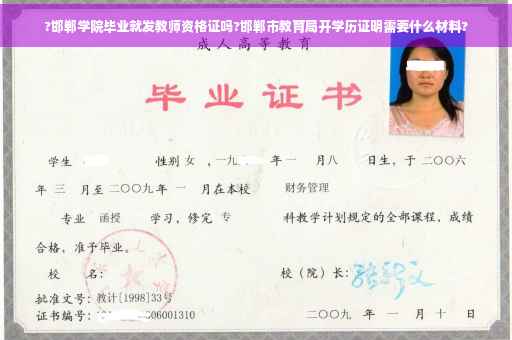 ?邯郸学院毕业就发教师资格证吗?邯郸市教育局开学历证明需要什么材料?
成人高等教育
毕业证书
学生 性别 女 ,一九 年 一 月 八 日生,于 二〇〇六
年 三 月至 二〇〇九 年 一 月在本校 财务管理
专业 函授 学习,修完 专 科教学计划规定的全部课程,成绩
合格,准予毕业。
校 名: 校(院)长:
批准文号:教计[1998]33号
证书编号: 606001310 二〇〇九 年 一 月 十 日